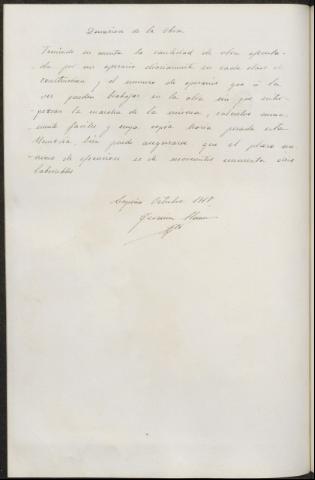 Duracion de la Obra
Teniendo en cuenta la cantidad de obra ejecuta-
da por un operario diariamente en cada clase de
construccion, y el numero de operarios que á la
vez pueden trabajar en la obra sin que entor-
pezcan la marcha de la misma, calculos suma-
mente faciles y cuya copia haria pesada esta
Memoria, bien puede asegurarse que el plazo ma-
ximo de ejecucion es de novecientos cincuenta dias
laborables
Octubre 1918